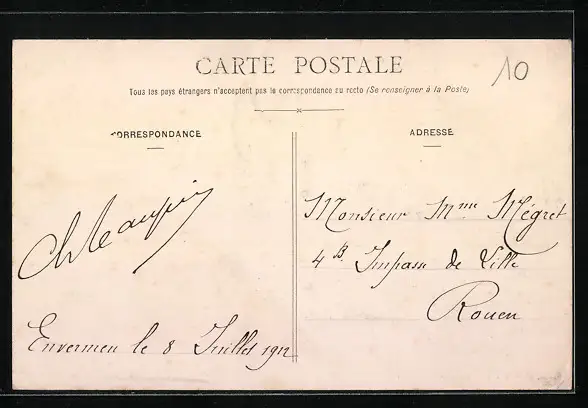 CARTE POSTALE
10
Tous les pays étrangers n'acceptent pas la correspondance au recto (Se renseigner à la Poste)
CORRESPONDANCE
ADRESSE
Monsieur Mme Mégret
4 B Impasse de Lille
Rouen
Envermeu le 8 Juillet 1912